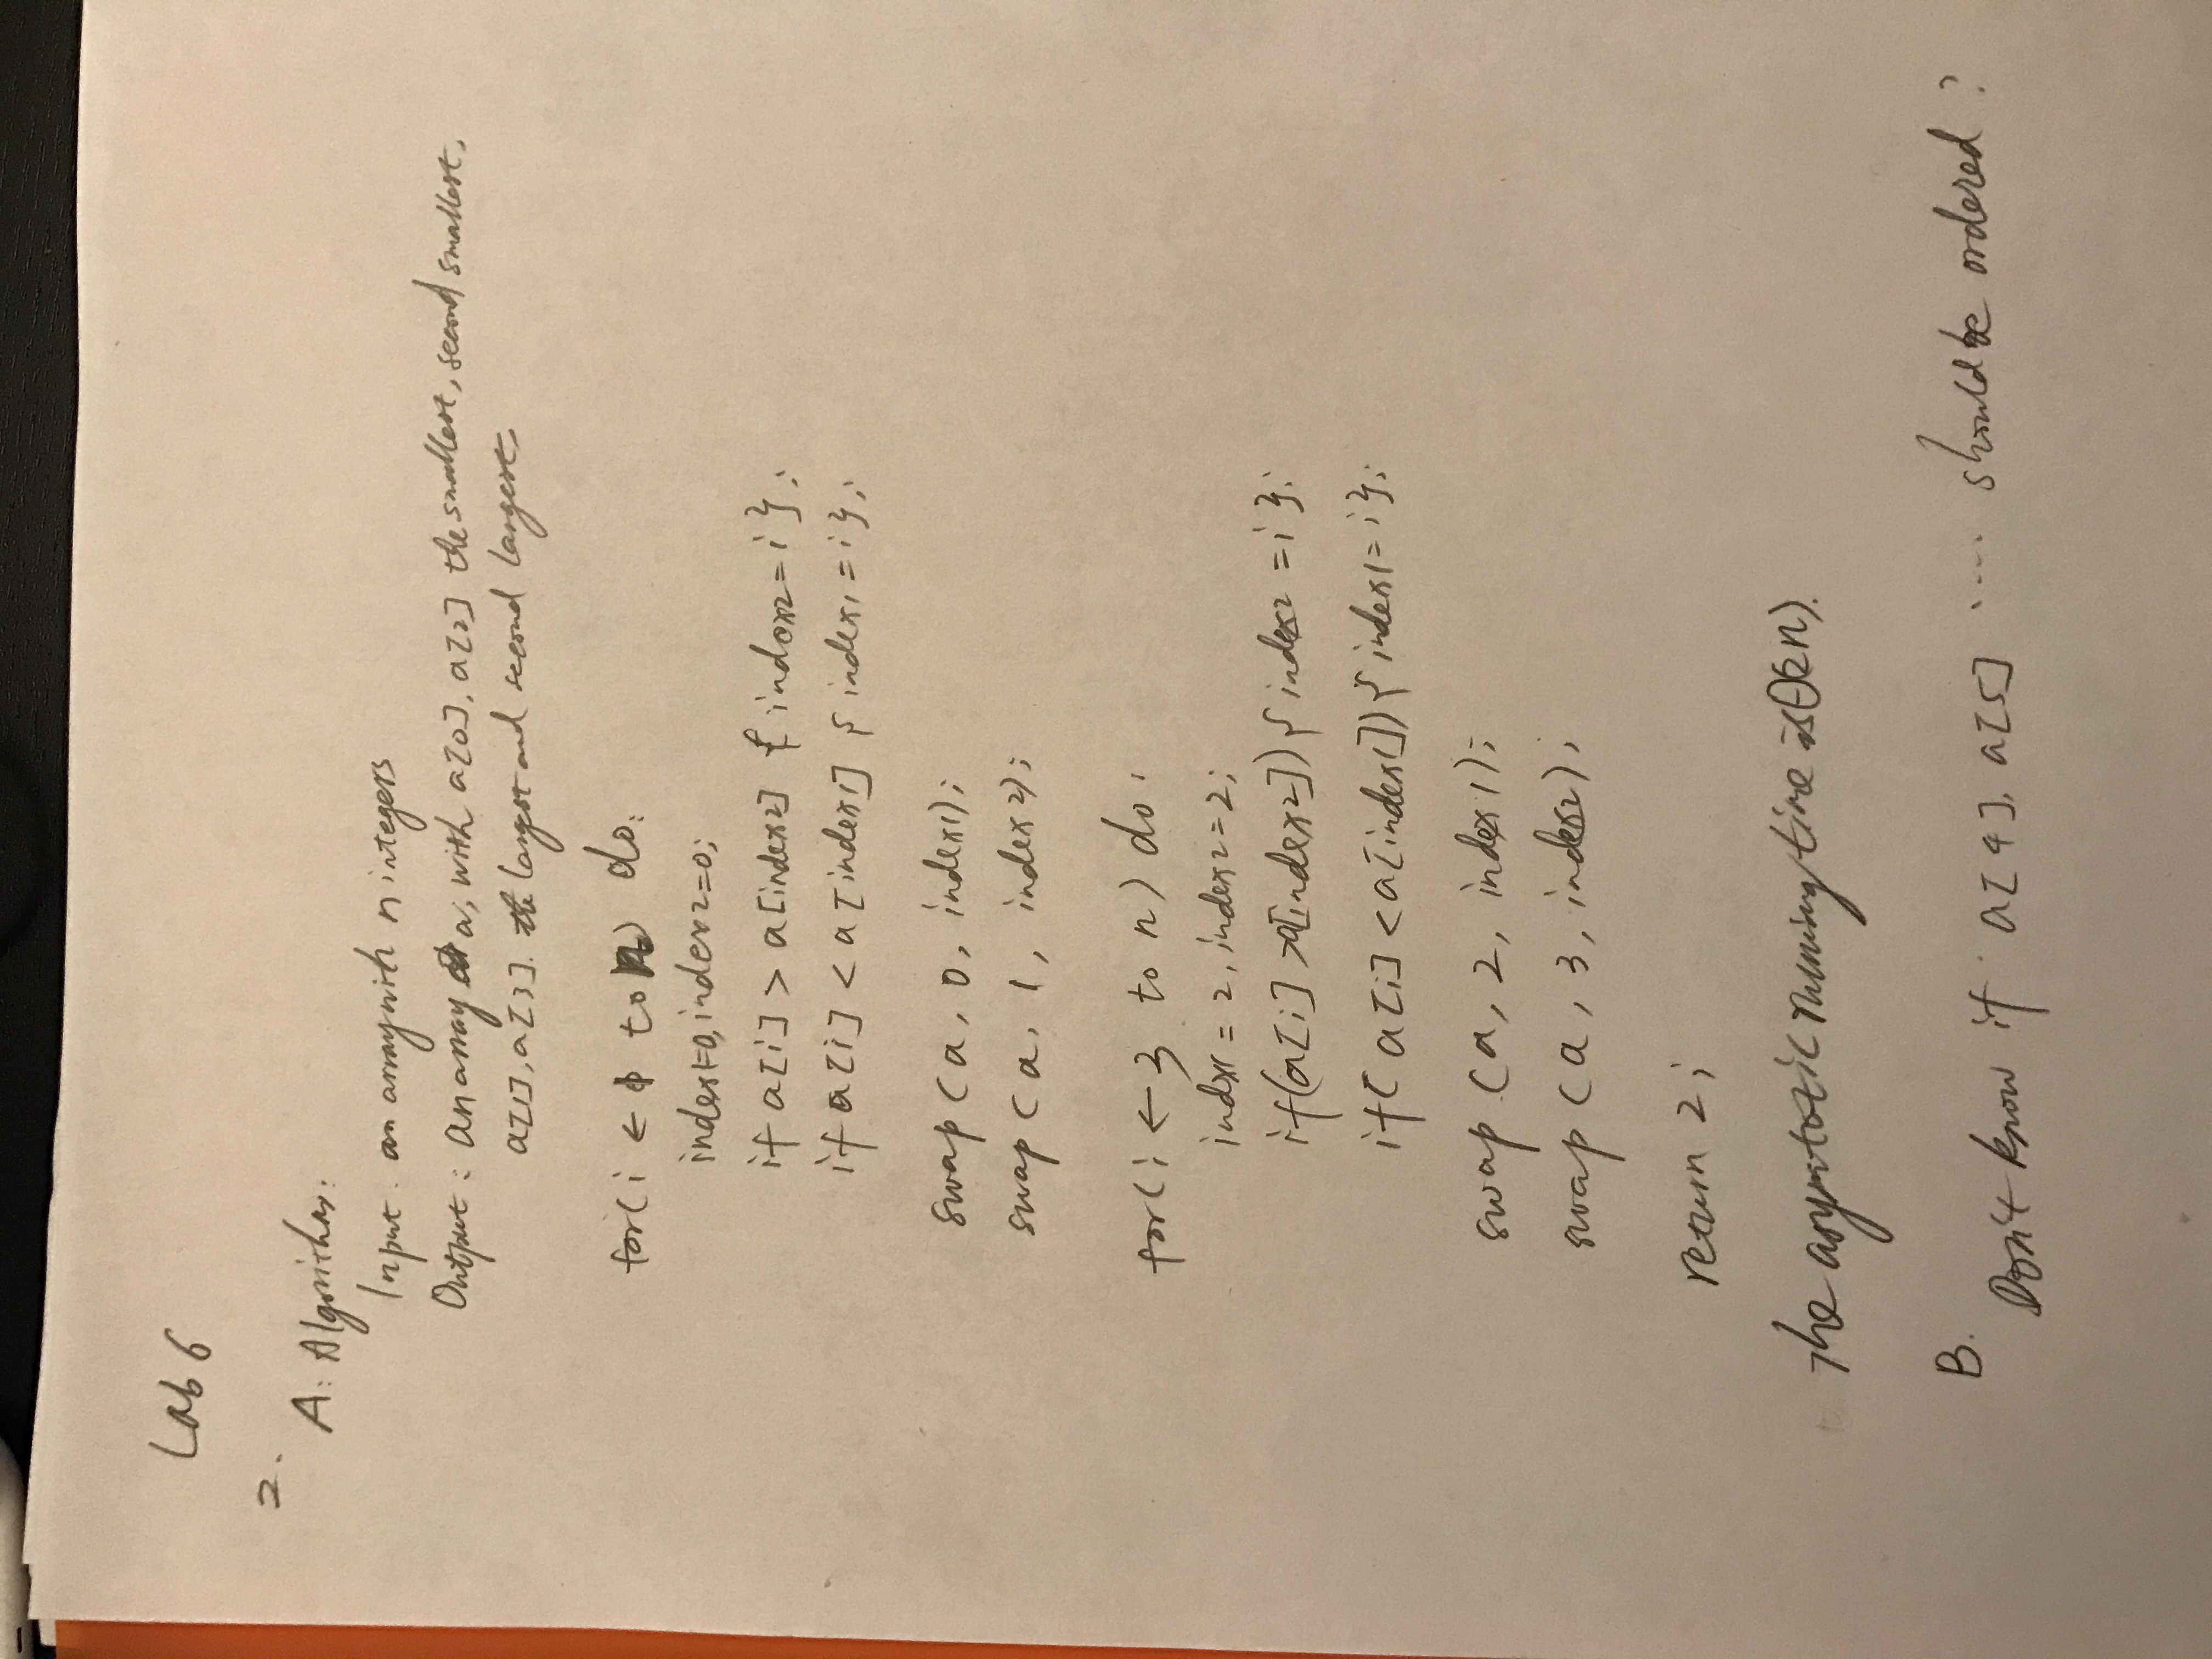 Lab 6
2.
A: Algorithm:
Input. an array with n integers
Output: an array a, with a[0], a[2] the smallest, second smallest,
a[1], a[3]. the largest and second largest,
for(i ← 1 to n) do:
index1=0, index2=0;
if a[i] > a[index2] { index2 = i };
if a[i] < a[index1] { index1 = i };
swap (a, 0, index1);
swap (a, 1, index2);
for(i ← 3 to n) do:
indx1 = 2, index2=2;
if(a[i] >a[index2]) { index2 = i };
if( a[i] < a[index1]) { index1 = i };
swap (a, 2, index1);
swap (a, 3, index2);
return 2;
The asymtotic running time is Θ(n).
B.
Don't know if a[4], a[5] .... should be ordered?